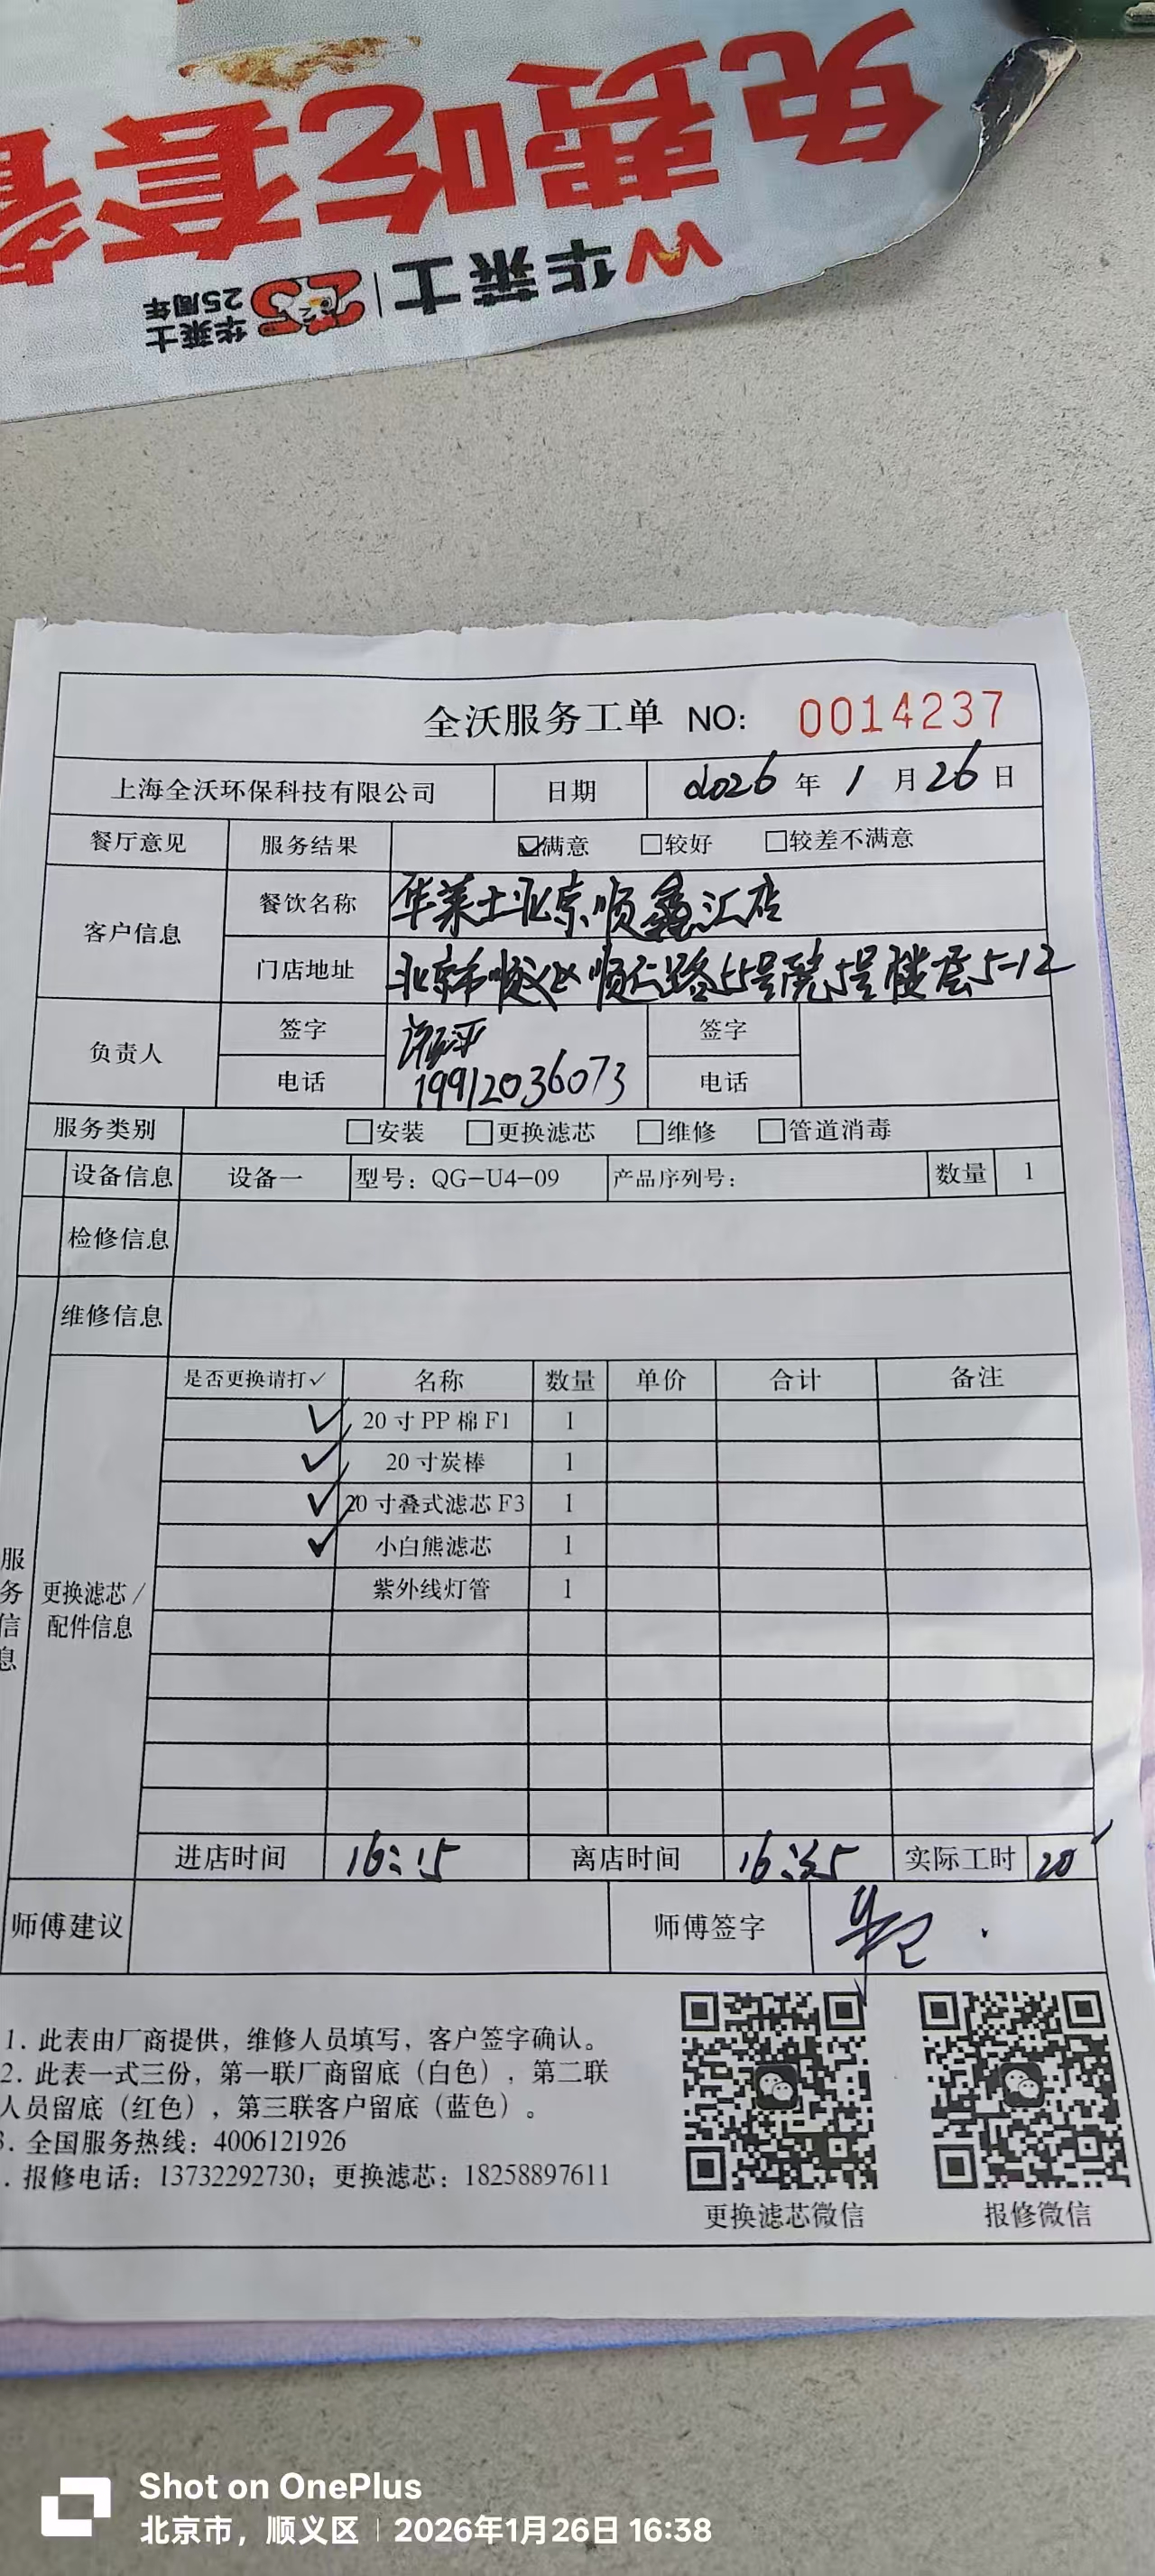 免费吃套餐
W华莱士 | 25 华莱士25周年
全沃服务工单 NO: 0014237
上海全沃环保科技有限公司 日期 2026 年 1 月 26 日
餐厅意见 服务结果 ☑满意 □较好 □较差不满意
客户信息 餐饮名称 华莱士北京顺鑫汇店
门店地址 北京市顺义区顺仁路55号院5号楼层5-12
负责人 签字 签字
电话 19912036073 电话
服务类别 □安装 □更换滤芯 □维修 □管道消毒
设备信息 设备一 型号：QG-U4-09 产品序列号： 数量 1
检修信息
维修信息
服务信息
更换滤芯/配件信息
是否更换请打✓ 名称 数量 单价 合计 备注
✓ 20寸PP棉F1 1
✓ 20寸炭棒 1
✓ 20寸叠式滤芯F3 1
✓ 小白熊滤芯 1
紫外线灯管 1
进店时间 16:15 离店时间 16:35 实际工时 20
师傅建议 师傅签字
1. 此表由厂商提供，维修人员填写，客户签字确认。
2. 此表一式三份，第一联厂商留底（白色），第二联
人员留底（红色），第三联客户留底（蓝色）。
3. 全国服务热线：4006121926
. 报修电话：13732292730；更换滤芯：18258897611
更换滤芯微信 报修微信
Shot on OnePlus
北京市，顺义区 | 2026年1月26日 16:38